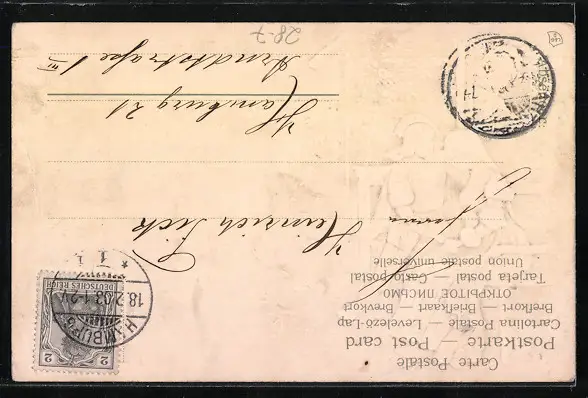 Carte Postale
Postkarte — Post card
Cartolina Postale — Levelező-Lap
Brefkort — Briefkaart — Brevkort
ОТКРЫТОЕ ПИСЬМО
Tarjeta postal — Carto postal
Union postale universelle
Herrn
Heinrich
Hamburg 21
Arndtstraße 1 III
HAMBURG
18.2.03.1-2V.
* 1 i
DEUTSCHES REICH
2
2
28-7